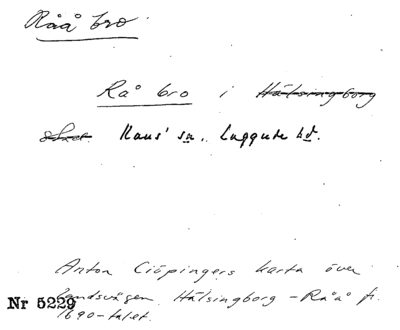 Råå bro
Rå bro i Hälsingborg
Raus' sn., Luggude hd.
Anton Ciöpingers karta över
landsvägen Hälsingborg – Råå fr.
Nr 5229
1690-talet.